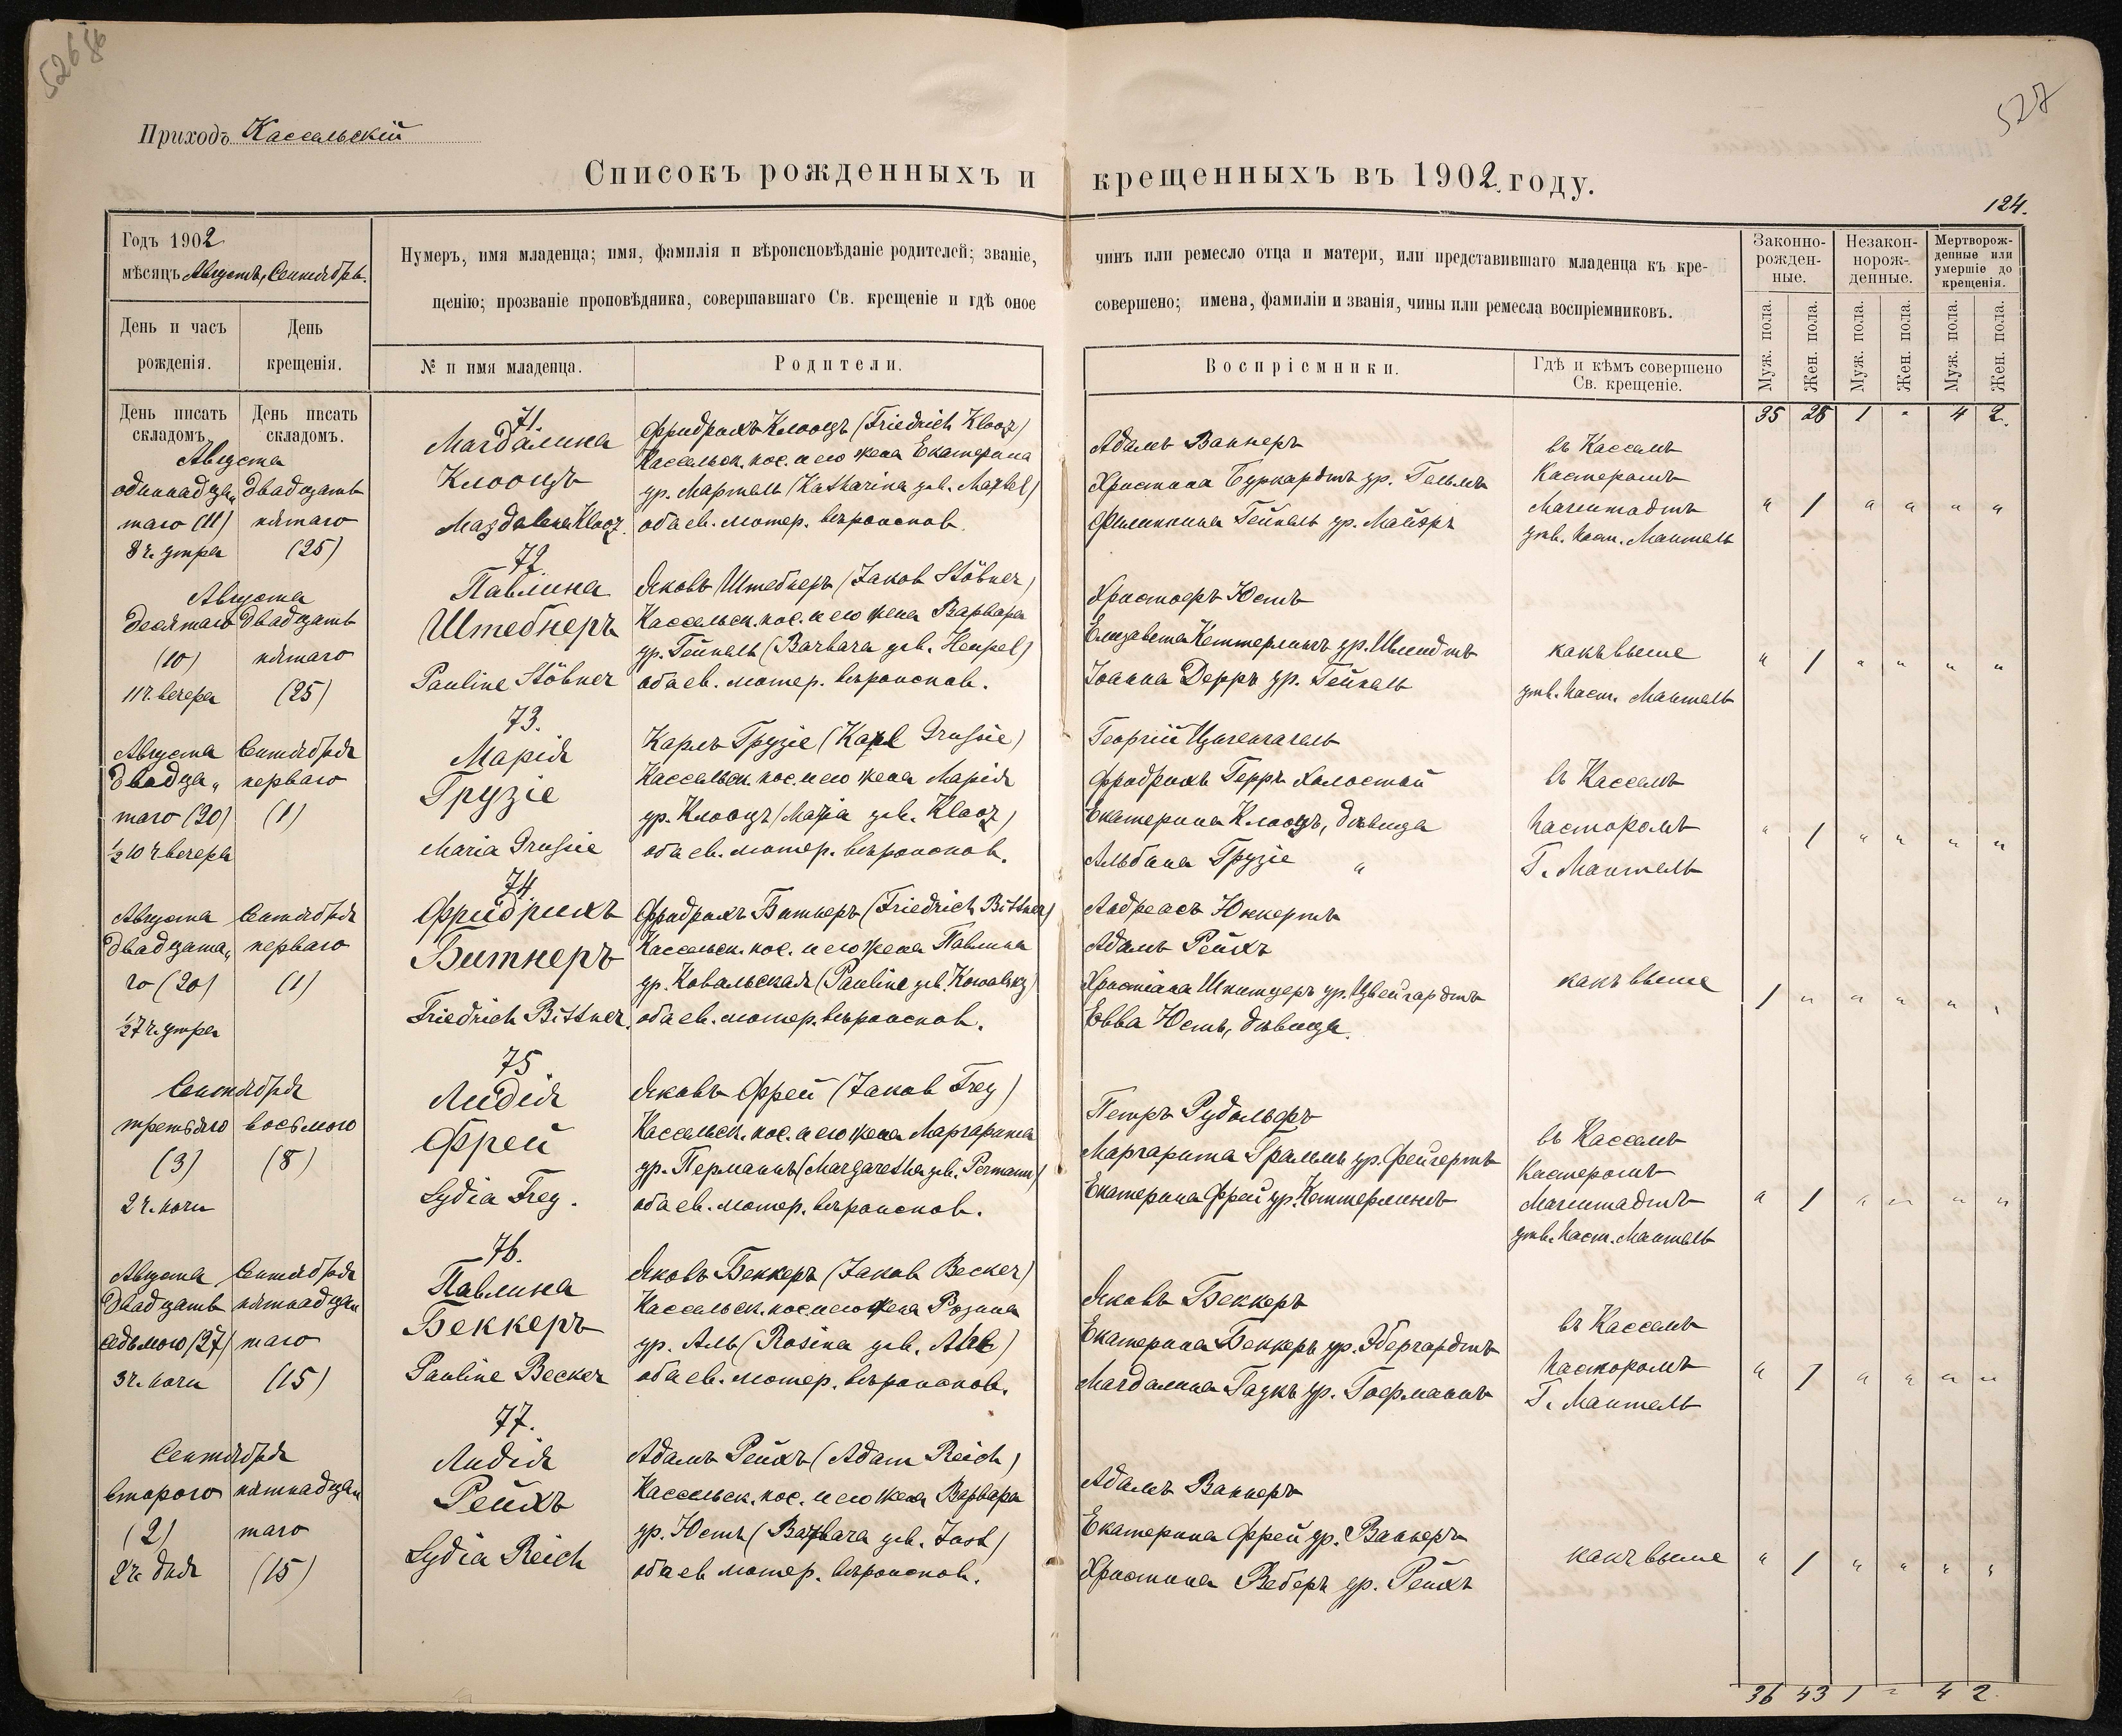 526 56
527
Приходъ Кассельскій
Списокъ рожденныхъ и крещенныхъ въ 1902 году.
124.
Годъ 1902
мѣсяцъ Августъ, Сентябрь.
Нумеръ, имя младенца; имя, фамилія и вѣроисповѣданіе родителей; званіе, чинъ или ремесло отца и матери, или представившаго младенца къ кре-
щенію; прозваніе проповѣдника, совершавшаго Св. крещеніе и гдѣ оное совершено; имена, фамиліи и званія, чины или ремесла воспріемниковъ.
Законно-
рожден-
ные.
Незакон-
норож-
денные.
Мертворож-
денные или
умершіе до
крещенія.
Муж. пола.
Жен. пола.
Муж. пола.
Жен. пола.
Муж. пола.
Жен. пола.
День и часъ
рожденія.
День
крещенія.
№ и имя младенца.
Родители.
Воспріемники.
Гдѣ и кѣмъ совершено
Св. крещеніе.
День писать
складомъ.
День писать
складомъ.
35 28 1 " 4 2.
Августа
одиннадца„
таго (11)
8 ч. утра
двадцать
пятаго
(25)
71.
Магдалина
Клооцъ
Magdalena Klooz.
Фридрихъ Клооцъ (Friedrich Klooz)
Кассельск. пос. и его жена Екатерина
ур. Мартель (Katharina geb. Martel)
оба ев.-лютер. вѣроиспов.
Адамъ Ваннеръ
Христина Буркардтъ ур. Гельмъ
Филиппина Гейпель ур. Майэръ
въ Касселѣ
Кистеромъ
Магштадтъ
утв. паст. Мантель
" 1 " " " "
Августа
десятаго
(10)
11 ч. вечера
двадцать
пятаго
(25)
72
Павлина
Штебнеръ
Pauline Stöbner
Яковъ Штебнеръ (Jakob Stöbner)
Кассельск. пос. и его жена Варвара
ур. Гейпель (Barbara geb. Heupel)
оба ев.-лютер. вѣроиспов.
Христофъ Юстъ
Елизавета Кеттерлингъ ур. Шмидтъ
Іоанна Дерръ ур. Гейпель
какъ выше
утв. паст. Мантель
" 1 " " " "
Августа
двадца„
таго (20)
½ 10 ч вечера
Сентября
перваго
(1)
73.
Марія
Грузіе
Maria Grusie
Карлъ Грузіе (Karl Grusie)
Кассельск. пос. и его жена Марія
ур. Клооцъ (Maria geb. Klooz)
оба ев.-лютер. вѣроиспов.
Георгій Цигенгагель
Фридрихъ Герръ холостой
Екатерина Клооцъ, дѣвица
Альбина Грузіе "
въ Касселѣ
пасторомъ
Г. Мантель
" 1 " " " "
Августа
двадцата„
го (20)
½ 7 ч. утра
Сентября
перваго
(1)
74.
Фридрихъ
Битнеръ
Friedrich Bittner.
Фридрихъ Битнеръ (Friedrich Bittner)
Кассельск. пос. и его жена Павлина
ур. Ковальская (Pauline geb. Kowalsky)
оба ев.-лютер. вѣроиспов.
Андреасъ Юккертъ
Адамъ Рейхъ
Христіана Шпитцеръ ур. Цвейгардтъ
Евва Юстъ, дѣвица.
какъ выше
1 " " " " "
Сентября
третьяго
(3)
2 ч. ночи
восьмого
(8)
75
Лидія
Фрей
Lydia Frey.
Яковъ Фрей (Jakob Frey)
Кассельск. пос. и его жена Маргарита
ур. Перманнъ (Margaretha geb. Permann)
оба ев.-лютер. вѣроиспов.
Петръ Рудольфъ
Маргарита Граммъ ур. Фейгертъ
Екатерина Фрей ур. Кеттерлингъ
въ Касселѣ
Кистеромъ
Магштадтъ
утв. паст. Мантель
" 1 " " " "
Августа
двадцать
седьмого (27)
3 ч. ночи
Сентября
пятнадца„
таго
(15)
76.
Павлина
Беккеръ
Pauline Becker
Яковъ Беккеръ (Jakob Becker)
Кассельск. пос. и его жена Розина
ур. Аль (Rosina geb. Ahl)
оба ев.-лютер. вѣроиспов.
Яковъ Беккеръ
Екатерина Беккеръ ур. Эбергардтъ
Магдалина Гаукъ ур. Гофманнъ
въ Касселѣ
пасторомъ
Г. Мантель
" 1 " " " "
Сентября
второго
(2)
2 ч. дня
пятнадца„
таго
(15)
77.
Лидія
Рейхъ
Lydia Reich
Адамъ Рейхъ (Adam Reich)
Кассельск. пос. и его жена Варвара
ур. Юстъ (Barbara geb. Jost)
оба ев лютер. вѣроиспов.
Адамъ Ваннеръ
Екатерина Фрей ур. Ваннеръ
Христина Веберъ ур. Рейхъ
какъ выше
" 1 " " " "
36 43 1 " 4 2.